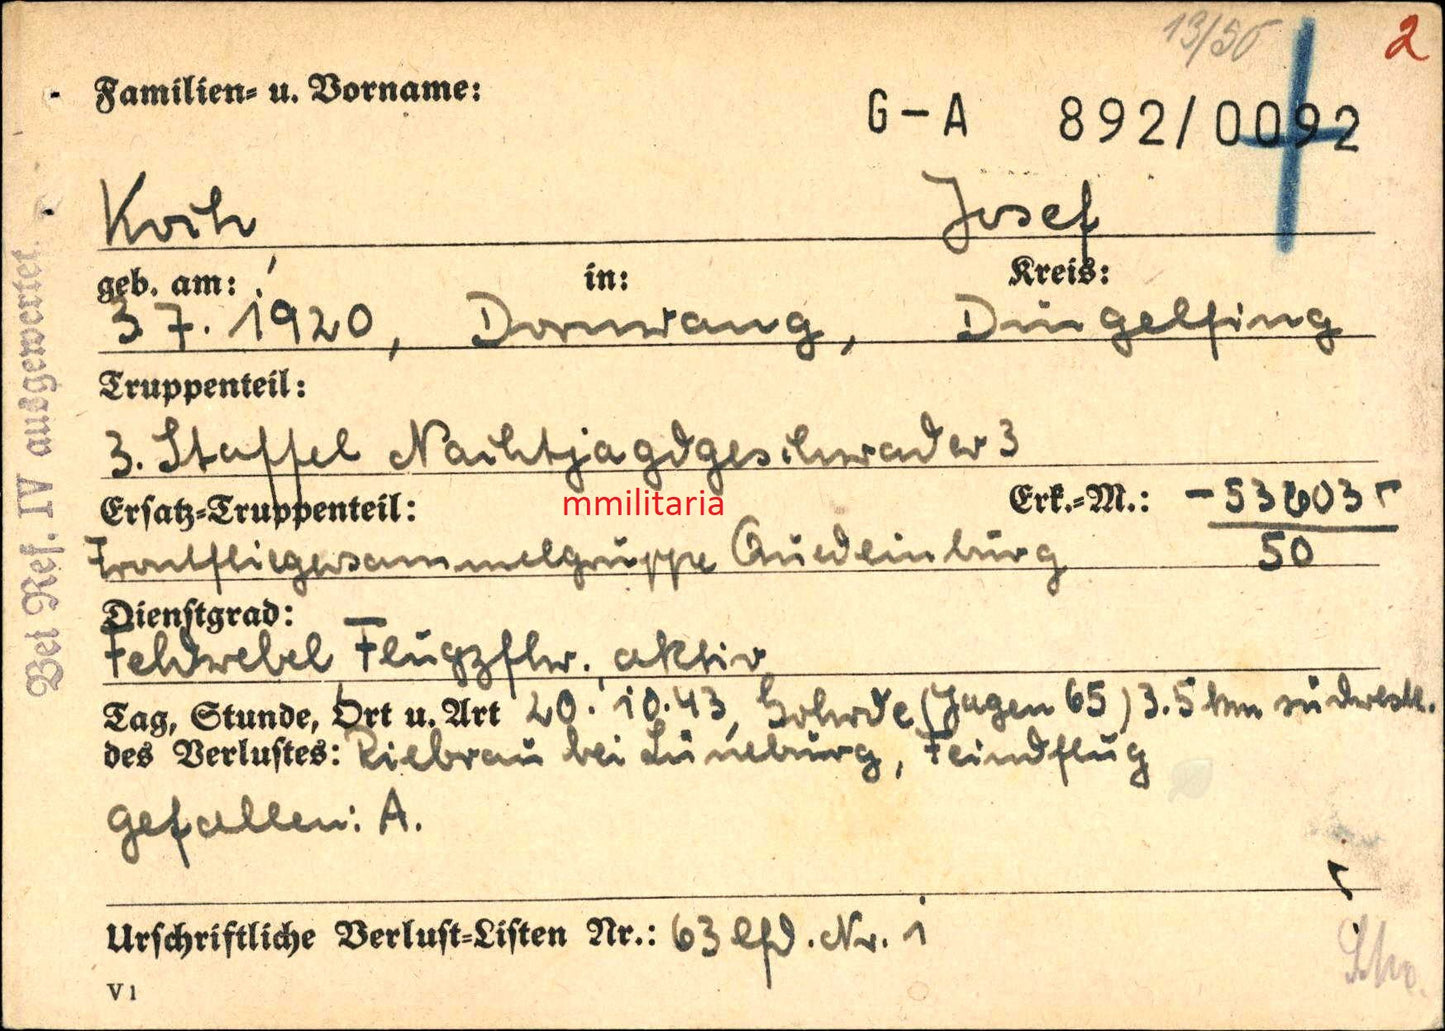 13/50 2
Familien- u. Vorname:
G-A 892/0092
Koch Josef
geb. am: in: Kreis:
3 7. 1920, Dornwang, Dingelfing
Truppenteil:
3. Staffel Nachtjagdgeschwader 3
Ersatz-Truppenteil: mmilitaria Erk.-M.: - 53603
Frontfliegersammelgruppe Quedlinburg 50
Dienstgrad:
Feldwebel Flugzfhr. aktiv
Tag, Stunde, Ort u. Art 20. 10. 43, Göhrde (Jagen 65) 3.5 km südwestl.
des Verlustes: Riebrau bei Lüneburg, Feindflug
gefallen: A.
Urschriftliche Verlust-Listen Nr.: 63 lfd. Nr. 1
V 1
Bei Ref. IV ausgewertet